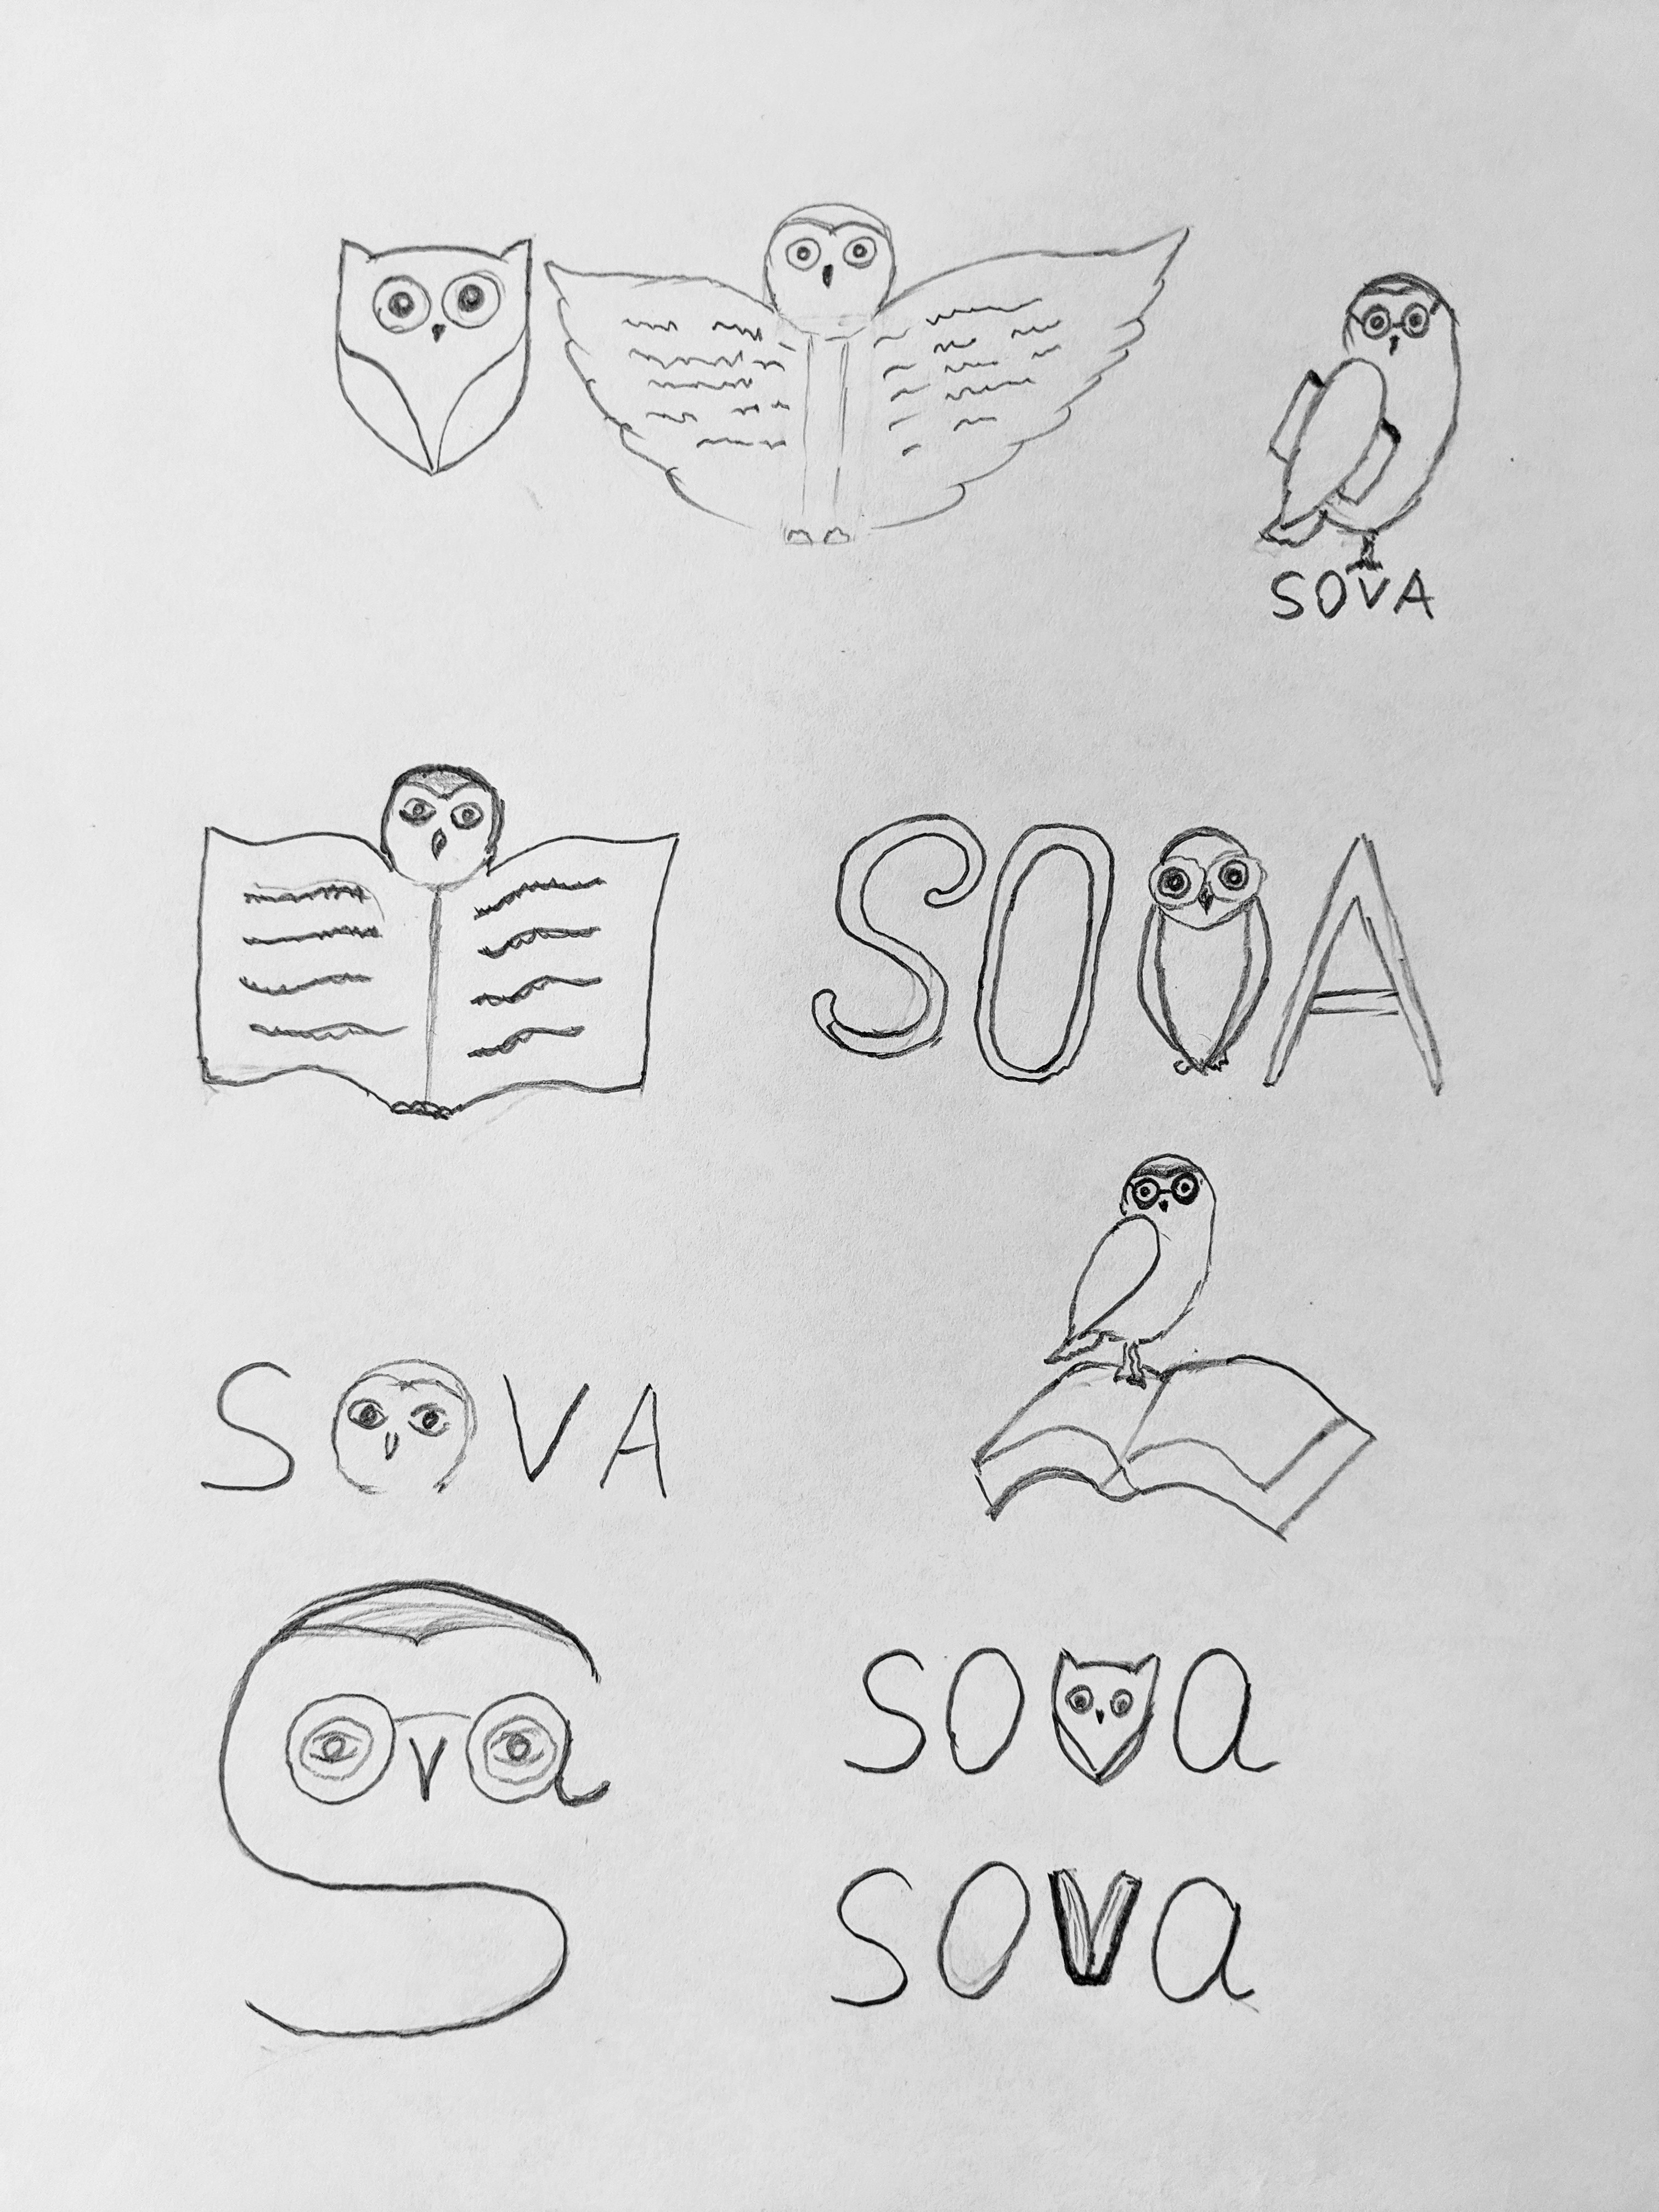 SOVA
SOVA
SOVA
Sova
sova
sova